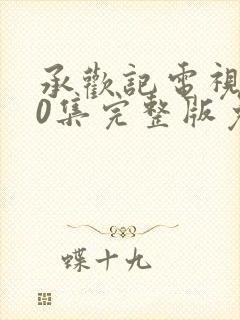 承歡記電視
0集完整版
蝶十九